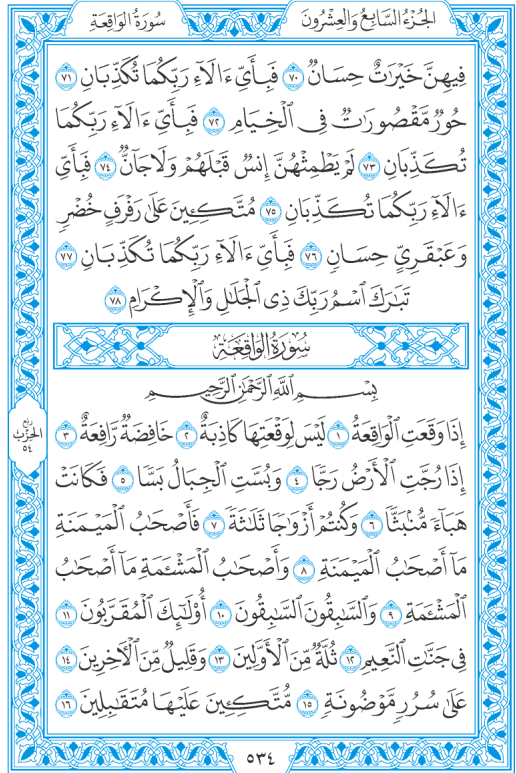 سُورَةُ الوَاقِعَةِ
الجُزْءُ السَّابِعُ وَالعِشْرُونَ
فِيهِنَّ خَيْرَٰتٌ حِسَانٌ ٧٠ فَبِأَىِّ ءَالَآءِ رَبِّكُمَا تُكَذِّبَانِ ٧١
حُورٌ مَّقْصُورَٰتٌ فِى ٱلْخِيَامِ ٧٢ فَبِأَىِّ ءَالَآءِ رَبِّكُمَا
تُكَذِّبَانِ ٧٣ لَمْ يَطْمِثْهُنَّ إِنسٌ قَبْلَهُمْ وَلَا جَآنٌّ ٧٤ فَبِأَىِّ
ءَالَآءِ رَبِّكُمَا تُكَذِّبَانِ ٧٥ مُتَّكِـِٔينَ عَلَىٰ رَفْرَفٍ خُضْرٍ
وَعَبْقَرِىٍّ حِسَانٍ ٧٦ فَبِأَىِّ ءَالَآءِ رَبِّكُمَا تُكَذِّبَانِ ٧٧
تَبَٰرَكَ ٱسْمُ رَبِّكَ ذِى ٱلْجَلَٰلِ وَٱلْإِكْرَامِ ٧٨
سُورَةُ الوَاقِعَةِ
بِسْمِ ٱللَّهِ ٱلرَّحْمَٰنِ ٱلرَّحِيمِ
إِذَا وَقَعَتِ ٱلْوَاقِعَةُ ١ لَيْسَ لِوَقْعَتِهَا كَاذِبَةٌ ٢ خَافِضَةٌ رَّافِعَةٌ ٣
إِذَا رُجَّتِ ٱلْأَرْضُ رَجًّا ٤ وَبُسَّتِ ٱلْجِبَالُ بَسًّا ٥ فَكَانَتْ
هَبَآءً مُّنۢبَثًّا ٦ وَكُنتُمْ أَزْوَٰجًا ثَلَٰثَةً ٧ فَأَصْحَٰبُ ٱلْمَيْمَنَةِ
مَآ أَصْحَٰبُ ٱلْمَيْمَنَةِ ٨ وَأَصْحَٰبُ ٱلْمَشْـَٔمَةِ مَآ أَصْحَٰبُ
ٱلْمَشْـَٔمَةِ ٩ وَٱلسَّٰبِقُونَ ٱلسَّٰبِقُونَ ١٠ أُو۟لَٰٓئِكَ ٱلْمُقَرَّبُونَ ١١
فِى جَنَّٰتِ ٱلنَّعِيمِ ١٢ ثُلَّةٌ مِّنَ ٱلْأَوَّلِينَ ١٣ وَقَلِيلٌ مِّنَ ٱلْءَاخِرِينَ ١٤
عَلَىٰ سُرُرٍ مَّوْضُونَةٍ ١٥ مُّتَّكِـِٔينَ عَلَيْهَا مُتَقَٰبِلِينَ ١٦
ربع
الحزب
٥٤
٥٣٤